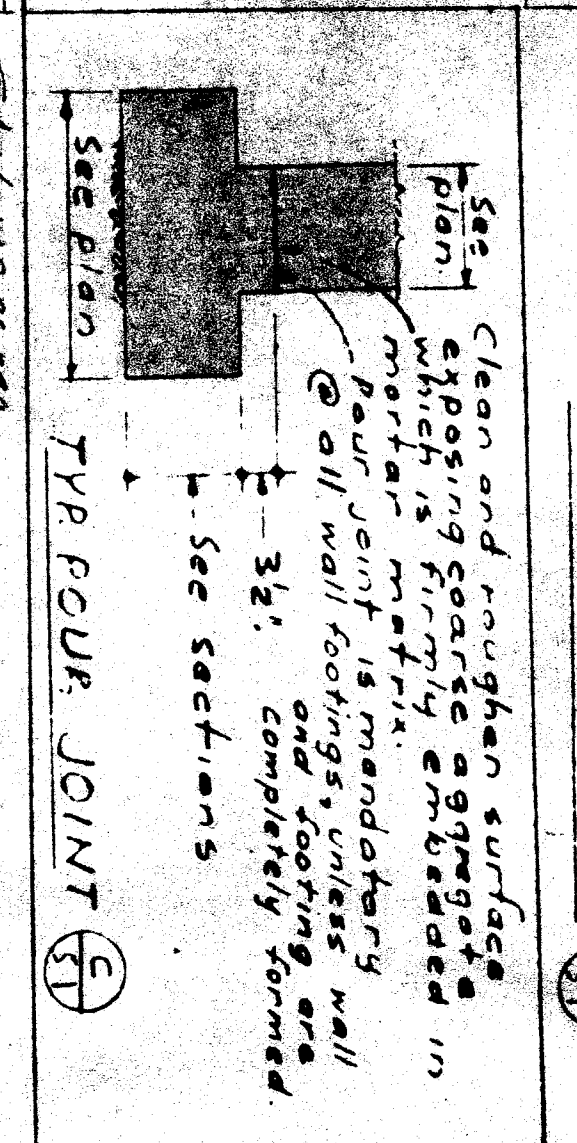 See
plan.
Clean and roughen surface
exposing coarse aggregate
which is firmly embedded in
mortar matrix.
Pour joint is mandatory
@ all wall footings, unless wall
and footing are
completely formed.
3½"
See sections
See plan
TYP. POUR JOINT
C
S1